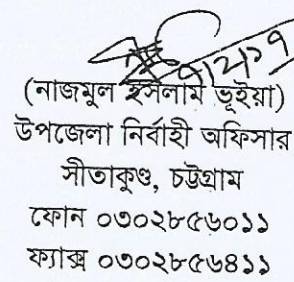 (নাজমুল ইসলাম ভূইয়া)
উপজেলা নির্বাহী অফিসার
সীতাকুণ্ড, চট্টগ্রাম
ফোন ০৩০২৮৫৬০১১
ফ্যাক্স ০৩০২৮৫৬৪১১